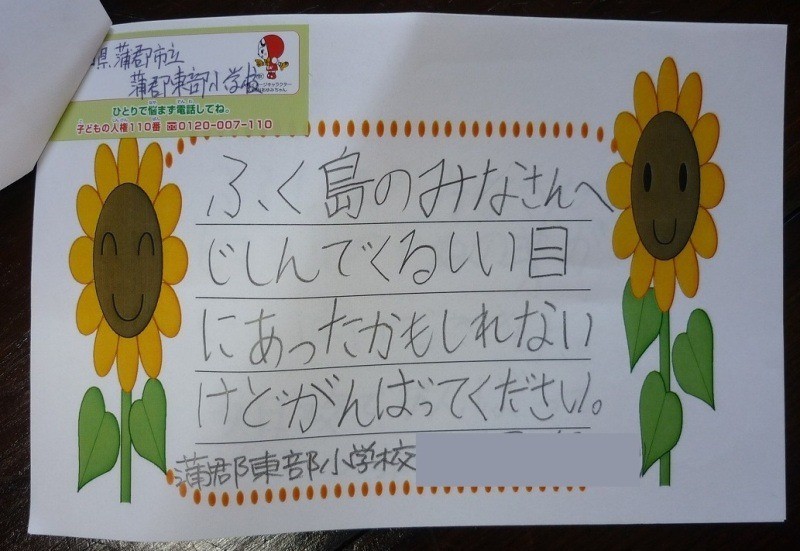 県蒲郡市立
蒲郡東部小学校
ひとりで悩まず電話してね。
子どもの人権110番 0120-007-110
ふく島のみなさんへ
じしんでくるしい目
にあったかもしれない
けどがんばってください。
蒲郡東部小学校